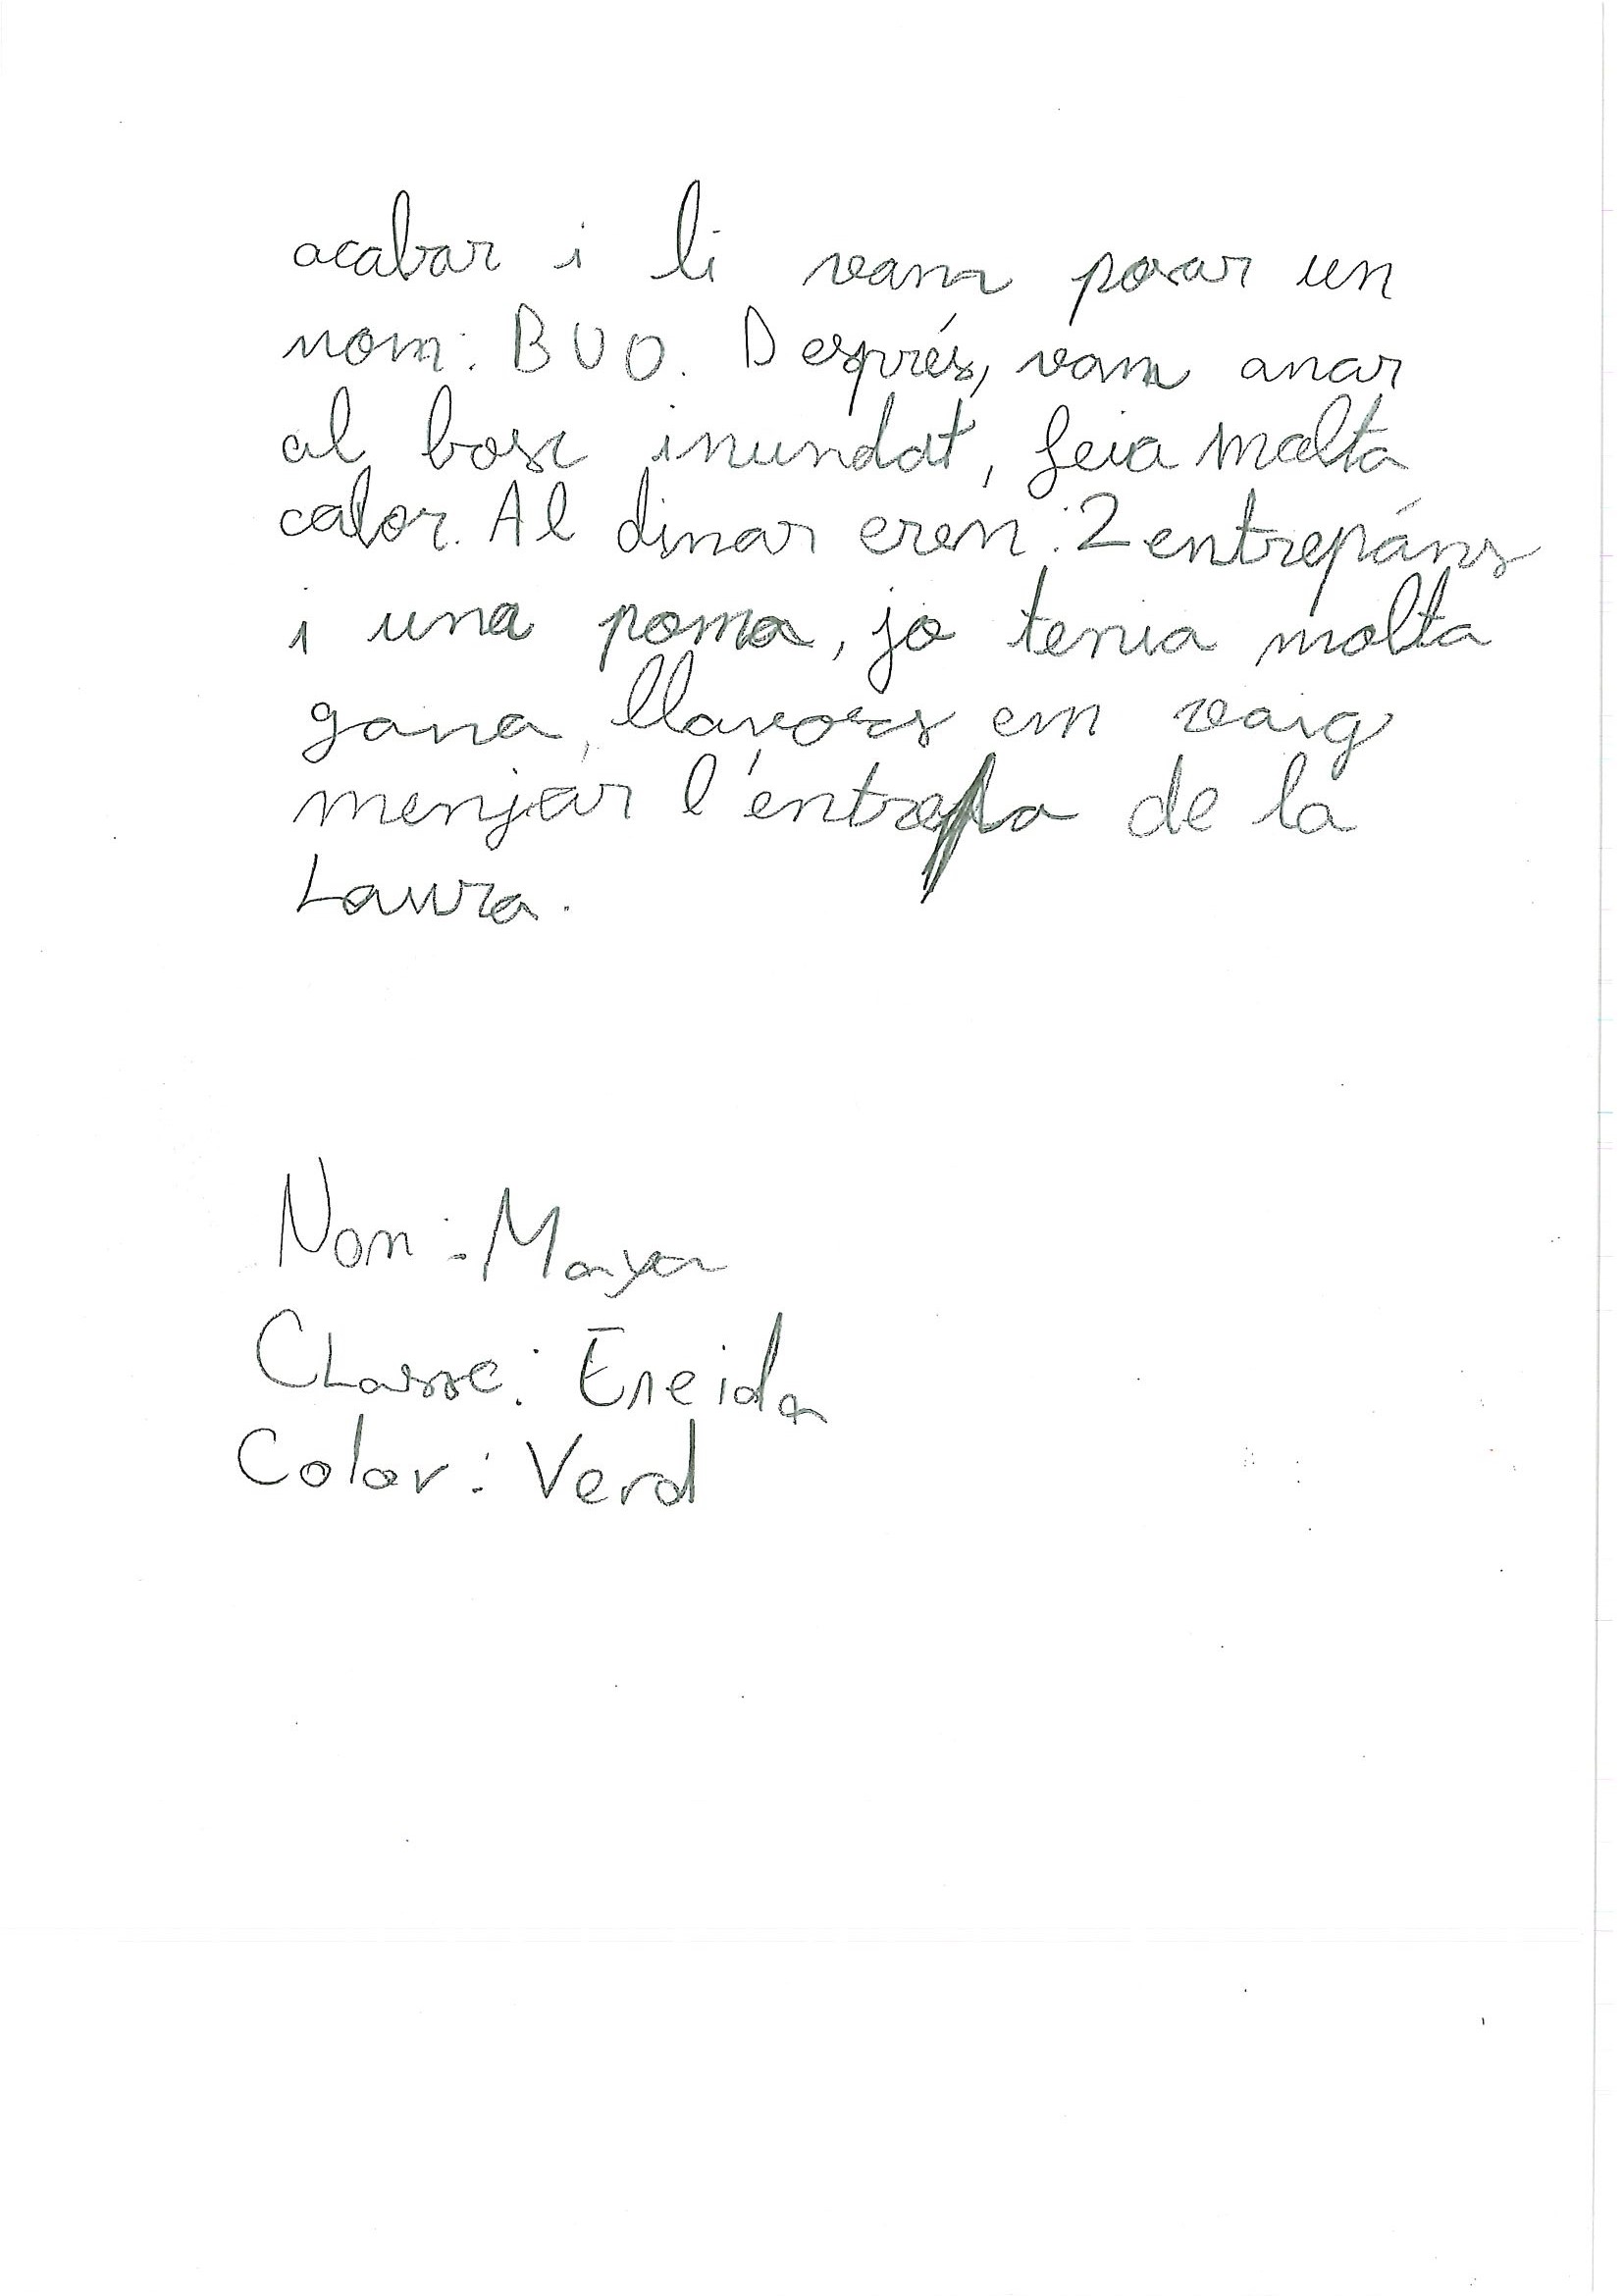 acabar i li vam posar un
nom: BUO. Després, vam anar
al bosc inundat, feia molta
calor. Al dinar eren: 2 entrepáns
i una poma, jo tenia molta
gana, llavors em vaig
menjar l'entrepa de la
Laura.
Nom:
Classe: Eneida
Color: Verd